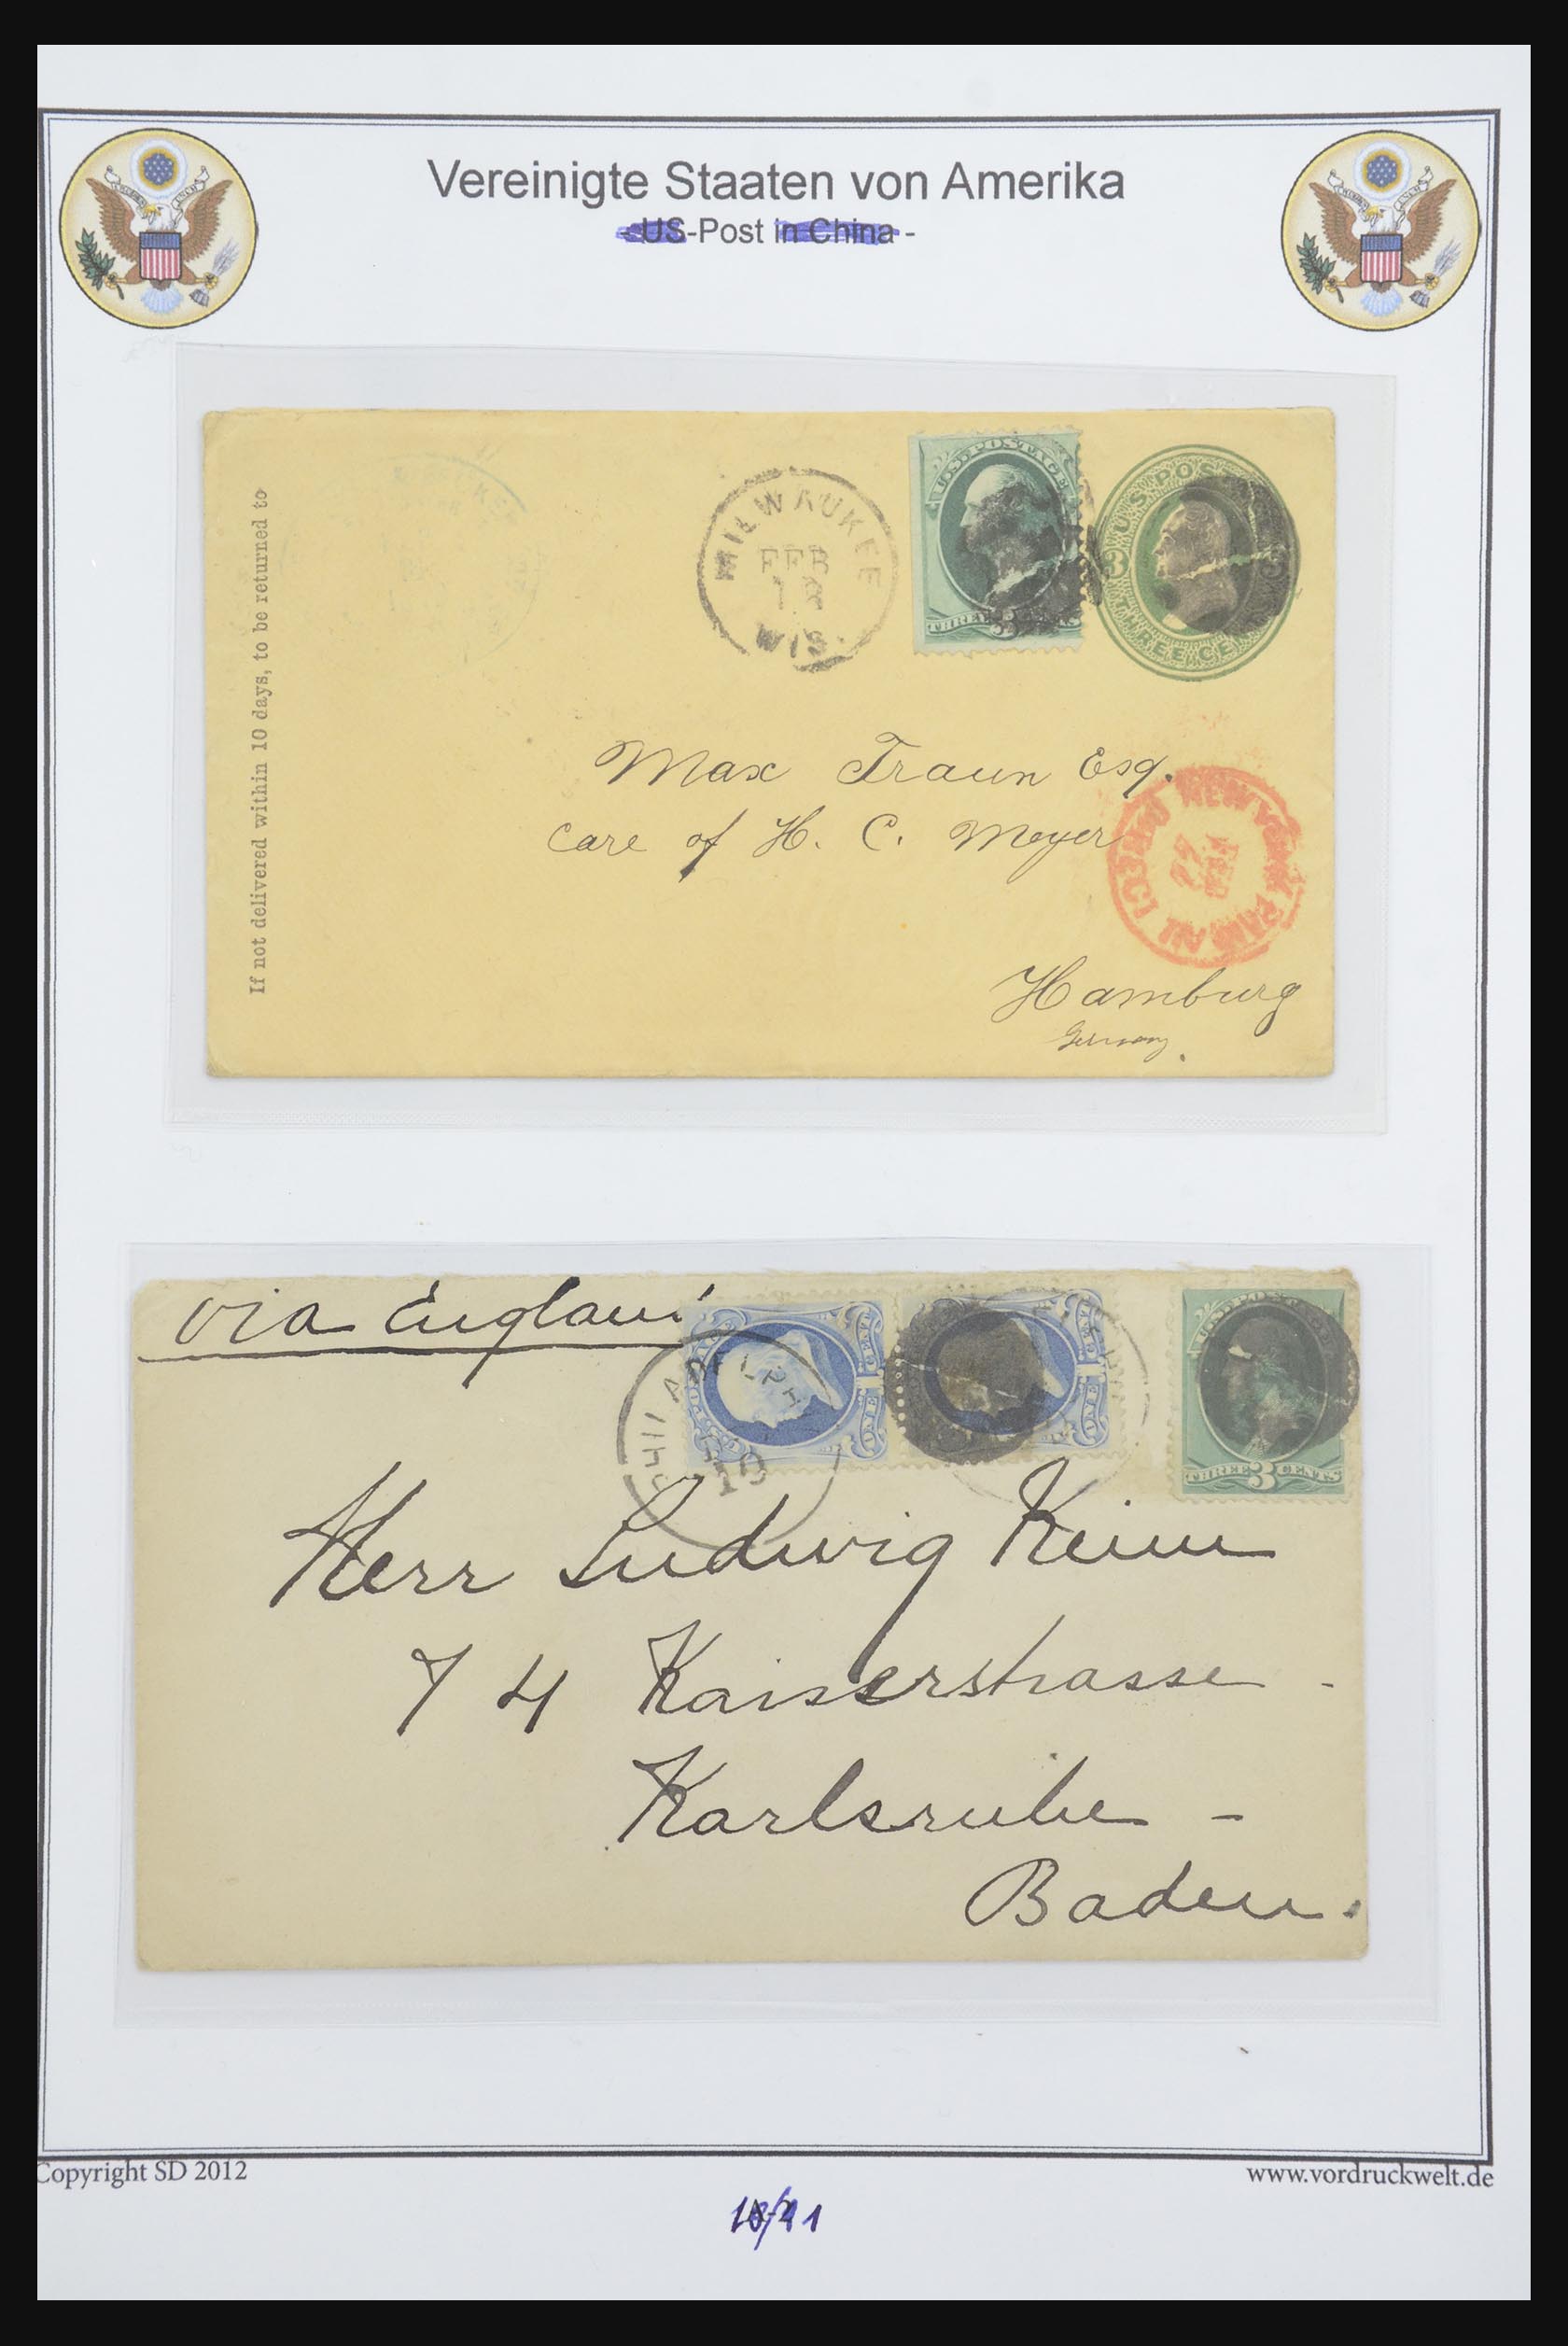 Vereinigte Staaten von Amerika
- US-Post in China -
If not delivered within 10 days, to be returned to
MILWAUKEE
FEB
WIS.
U.S. POSTAGE
THREE CENTS
U.S. POS
3
THREE CE
Max Traun Esq.
Care of H. C. Meyer
NEW YORK
Hamburg
Germany.
via England
PHILADELPHI
ONE CENT
ONE CENT
U.S. POSTAGE
THREE 3 CENTS
Herr Ludwig Keim
74 Kaiserstrasse -
Karlsruhe -
Baden.
Copyright SD 2012
www.vordruckwelt.de